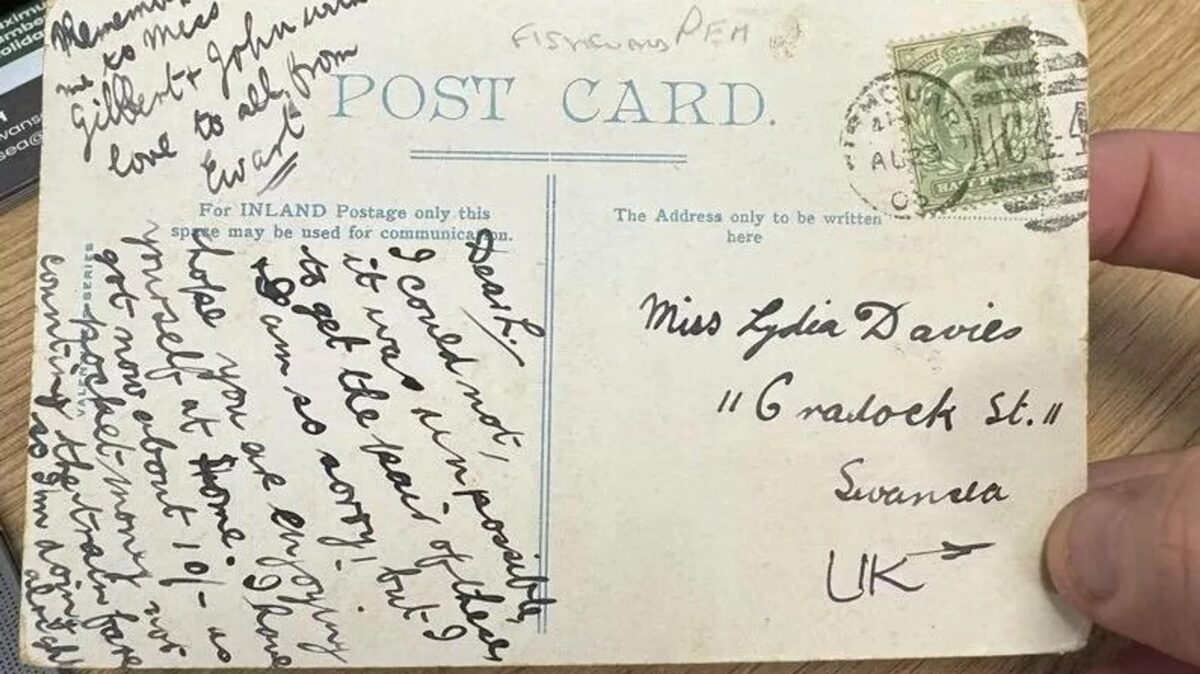 Remember
me to Miss
Gilbert & John with
love to all from
Ewart
POST CARD.
For INLAND Postage only this
space may be used for communication.
The Address only to be written
here
Dear L.
I could not,
it was unpossible,
to get the pair of these
but I
am so sorry!
hope you are enjoying
yourself at Home. I have
got now about 10/- as
pocket-money not
counting the train fare
so I'm doing alright
Miss Lydia Davies
"Cradock St."
Swansea
UK
VALENTINES SERIES
PEM
AU 3
HALFPENNY